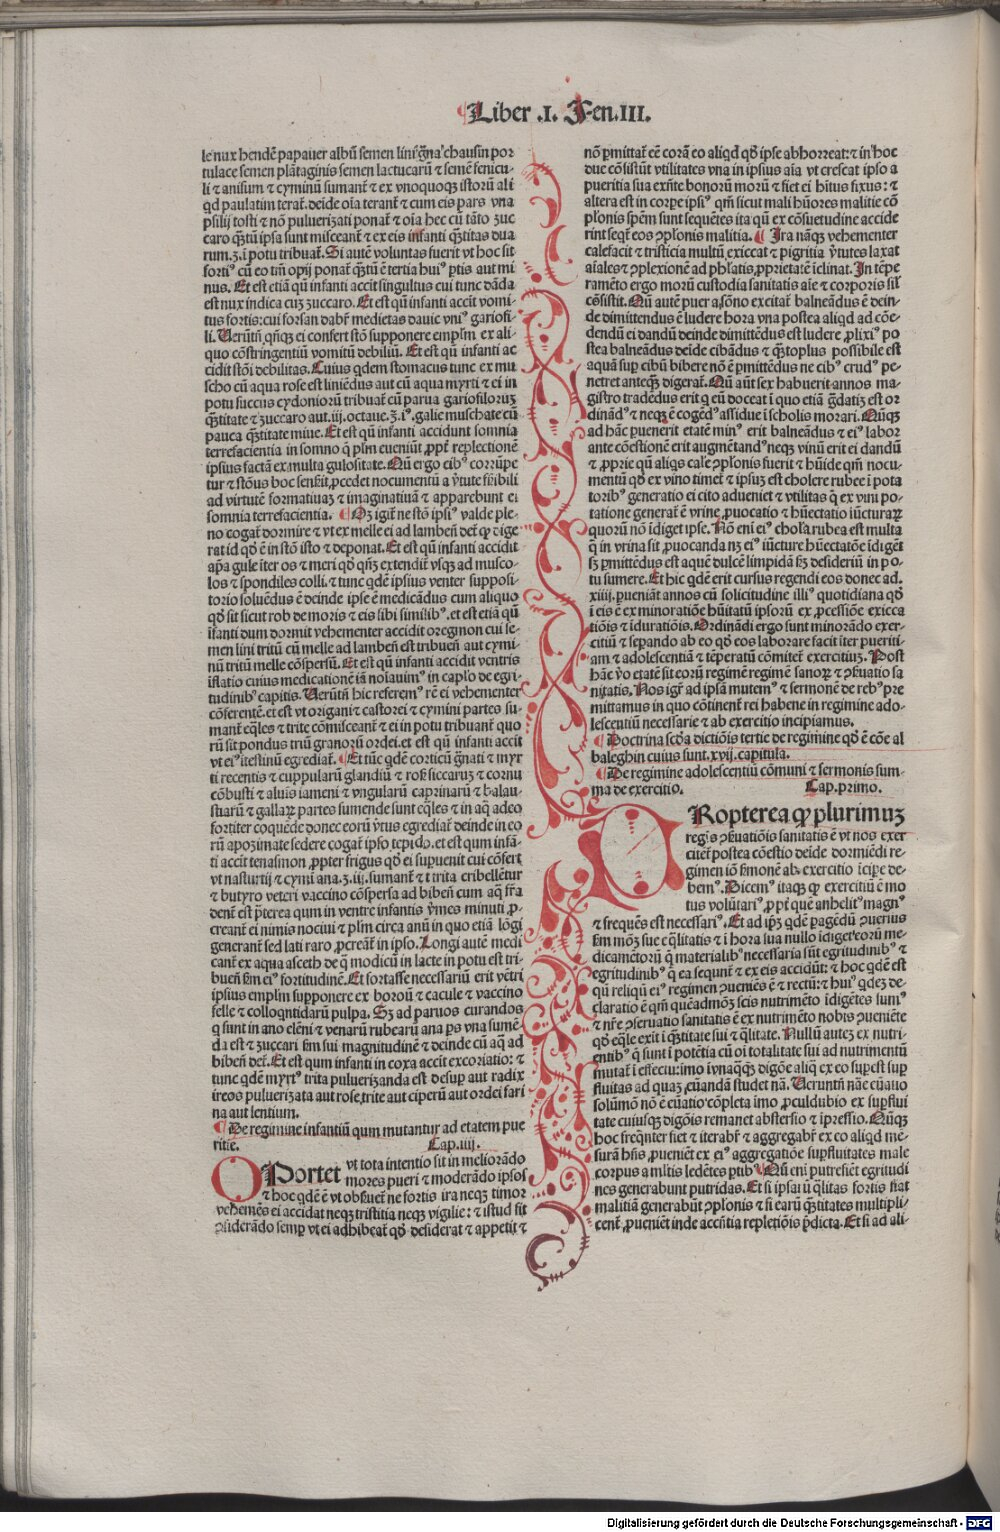 Liber .I. Fen.III.
le nux hendē papauer albū semen lini g̃na chausin por
tulace semen plātaginis semen lactucarū ⁊ semē fenicu-
li ⁊ anisum ⁊ cyminū sumant̃ ⁊ ex vnoquoqꝫ istorū ali
qd paulatim terat̃. deīde oīa terant̃ ⁊ cum eis pars vna
psilij tosti ⁊ nō puluerizati ponat̃ ⁊ oīa hec cū tāto zuc
caro q̄ꝫtū ipsa sunt misceant̃ ⁊ ex eis infanti q̄ꝫtitas dua
rum.ʒ.ī potu tribuat̃. Si autē voluntas fuerit vt hoc sit
forti⁹ cū eo tm̄ opij ponat̃ q̄ꝫtū ē tertia hui⁹ ptis aut mi
nus. Et est etiā qñ infanti accīt singultus cui tunc dāda
est nux indica cuꝫ zuccaro. Et est qñ infanti accīt vomi
tus fortis: cui forsan dabr̃ medietas dauic vni⁹ gariofi-
li. Verūtñ qñqꝫ ei confert stō supponere emplm̄ ex ali-
quo cōstringentiū vomitū debiliū. Et est qñ infanti ac
cidit stōi debilitas. Cuius qdem stomacus tunc ex mu
scho cū aqua rose est liniēdus aut cū aqua myrti ⁊ ei in
potu succus cydoniorū tribuat̃ cū parua gariofiloruꝫ
q̄ꝫtitate ⁊ zuccaro aut.iij.octaue.ʒ.i⁹.galie muschate cū
pauca q̄ꝫtitate miue. Et est qñ infanti accidunt somnia
terrefacientia in somno q̄ plm̄ eueniūt ꝓpt̃ repletionē
ipsius factā ex multa gulositate. Qñ ergo cib⁹ corrūpe
tur ⁊ stōus hoc senserit ꝓcedet nocumentū a v̓tute sensibili
ad virtutē formatiuaꝫ ⁊ imaginatiuā ⁊ apparebunt ei
somnia terrefacientia. ¶ Oꝫ igit̃ ne stō ipsi⁹ valde ple-
no cogat̃ dormire ⁊ vt ex melle ei ad lamben̄ det̃ qꝫ dige
rat id qd̓ ē in stō isto ⁊ deponat. Et est qñ infanti accidit
apa gule iter os ⁊ meri qd̓ qñqꝫ extendit̃ vsqꝫ ad musco-
los ⁊ spondiles colli. ⁊ tunc qdē ipsius venter supposi-
torio soluēdus ē deinde ipse ē medicādus cum aliquo
qd̓ sit sicut rob de moris ⁊ eis sibi similib⁹. et est etiā qñ
īfanti dum dormit vehementer accidit oregmon cui se-
men lini tritū cū melle ad lamben̄ est tribuen̄ aut cymi-
nū tritū melle cōspersū. Et est qñ infanti accidit ventris
īflatio cuius medicationē iā noīauim⁹ in caplo de egri-
tudinib⁹ capitis. Verūtñ hic referem⁹ rē ei vehementer
cōferentē. et est vt origani ⁊ castorei ⁊ cymini partes su-
mant̃ eq̄les ⁊ trite cōmisceant̃ ⁊ ei in potu tribuant̃ quo
rū sit pondus triū granorū ordei. et est qñ infanti accīt
vt ei⁹ itestinū egrediat̃. ¶ Et tūc qdē corticū gnati ⁊ myr
ti recentis ⁊ cuppularū glandiū ⁊ ros̄ siccaruꝫ ⁊ cornu
cōbusti ⁊ aluis iameni ⁊ vngularū caprinarū ⁊ balau-
stiarū ⁊ gallaꝝ partes sumende sunt eq̄les ⁊ in aq̄ adeo
fortiter coquēde donec eorū v̓tus egrediat̃ deinde in eo
rū apozimate sedere cogat̃ ipso tepido. et est qum infā-
ti accīt tenasmon ꝓpter frigus qd̓ ei supuenit cui cōfert
vt nasturtij ⁊ cymī ana.ʒ.iij.sumant̃ ⁊ t trita cribellētur
⁊ butyro veteri vaccino cōspersa ad biben̄ cum aq̄ frīa
dent̃ est p̄terea qum in ventre infantis v̓mes minuti ꝓ-
creant̃ ei nimis nociui ⁊ plm̄ circa anū in quo etiā lōgi
generant̃ sed lati raro ꝓcreāt̃ in ipso. Longi autē medi
cant̃ ex aqua asceth de q̄ modicū in lacte in potu est tri-
buen̄ s̄m ei⁹ fortitudinē. Et fortasse necessariū erit vētri
ipsius emplm̄ supponere ex boꝛoū ⁊ cacule ⁊ vaccino
felle ⁊ colloquītidarū pulpa. Sꝫ ad paruos curandos
q̄ sunt in ano elenī ⁊ venarū rubearū ana ps vna sumē-
da est ⁊ zuccari s̄m sui magnitudinē ⁊ deinde cū aq̄ ad
biben̄ det̃. Et est qum infanti in coxa accīt excoriatio: ⁊
tunc qdē myrt⁹ trita puluerizanda est desuꝑ aut radix
ireos puluerizata aut rose trite aut ciperū aut ordei fari
na aut lentium.
¶ De regimine infantiū qum mutantur ad etatem pue
ritie. Cap.iiij.
OPortet vt tota intentio sit in meliorādo
mores pueri ⁊ moderādo ipsos
⁊ hoc qdē ē vt obseruet̃ ne fortis ira neqꝫ timor
vehemēs ei accidat neqꝫ tristitia neqꝫ vigilie: ⁊ istud sit
ꝯsiderādo semꝑ vt ei adhibeat̃ qd̓ desiderat ⁊ appetit ⁊
nō ꝑmittat̃ eē corā eo aliqd qd̓ ipse abhorreat: ⁊ in hoc
due cōsistūt vtilitates vna in ipsius aīa vt crescat ipso a
pueritia sua exñte bonorū morū ⁊ fiet ei hītus fixus: ⁊
altera est in corpe ipsi⁹ qm̄ sicut mali hūores malitie cō
plonis spēm sunt sequētes ita qñ ex cōsuetudine accide
rint seqt̃ eos ꝯplonis malitia. ¶ Ira nāqꝫ vehementer
calefacit ⁊ tristicia multū exiccat ⁊ pigritia v̓tutes laxat
aīales ⁊ ꝯplexionē ad phlatis ꝓprietatē īclinat. In tēpe
ramēto ergo morū custodia sanitatis aīe ⁊ corporis sil̓
cōsistit. Qñ autē puer a sōno excitat̃ balneādus ē dein-
de dimittendus ē ludere hora vna postea aliqd ad cōe-
dendū ei dandū deinde dimittēdus est ludere ꝓlixi⁹ po
stea balneādus deīde cibādus ⁊ q̄ꝫtoplus possibile est
aquā suꝑ cibū bibere nō ē ꝑmittēdus ne cib⁹ crud⁹ pe-
netret anteqꝫ digerat̃. Qñ aūt sex habuerit annos ma-
gistro tradēdus erit q̄ eū doceat ī quo etiā g̃datiꝫ est or
dināð ⁊ neqꝫ ē cogēð assidue ī scholis morari. Qñqꝫ
ad hāc puenerit etatē min⁹ erit balneādus ⁊ ei⁹ labor
ante cōestionē erit augmētanð neqꝫ vinū erit ei dandū
⁊ ꝓprie qñ aliqs cale ꝯplonis fuerit ⁊ hūide qm̄ nocu-
mentū qd̓ ex vino timet̃ ⁊ ipsuꝫ est cholere rubee ī pota
torib⁹ generatio ei cito adueniet ⁊ vtilitas q̄ ex vini po-
tatione generat̃ ē vrine ꝓuocatio ⁊ hūectatio iūcturaꝝ
quorū nō īdiget ipse. Nō eni ei⁹ chol̓a rubea est multa
q̄ in vrina sit ꝓuocanda nꝫ ei⁹ iūcture hūectatōe īdigēt
sꝫ ꝑmittēdus est aquē dulcē limpidā s̄ꝫ desideriū in po-
tu sumere. Et hic qdē erit cursus regendi eos donec ad.
xiiij.ꝑueniāt annos cū solicitudine illi⁹ quotidiana qd̓
ī eis ē ex minoratiōe hūitatū ipsorū ex ꝓcessiōe exicca
tiōis ⁊ iduratiōis. Ordinādi ergo sunt minorādo exer-
citiū ⁊ sepando ab eo qd̓ eos laborare facit īter pueriti
am ⁊ adolescentiā ⁊ tēperatū cōmitet̃ exercitiuꝫ. Post
hāc v̓o etatē sit eorū regimē regimē sanoꝝ ⁊ ꝯseruatio sa
nitatis. Nos igr̃ ad ipsā mutem⁹ ⁊ sermonē de reb⁹ pre
mittamus in quo cōtinent̃ rei habene in regimine ado-
lescentiū necessarie ⁊ ab exercitio incipiamus.
¶ Doctrina scd̓a dictiōis tertie de regimine qd̓ ē cōe al
baleghin cuius sunt.xvij.capitula.
¶ De regimine adolescentiū cōmuni ⁊ sermonis sum-
ma de exercitio. Cap.primo.
PRopterea qꝫ plurimuꝫ
regis ꝯseruatiōis sanitatis ē vt nos exer
citet̃ postea cōestio deīde dormiēdi re-
gimen iō s̄monē ab exercitio īcipe de-
bem⁹. Dicem⁹ itaqꝫ qꝫ exercitiū ē mo
tus volūtari⁹ ꝓpt̃ quē anhelit⁹ magn⁹
⁊ frequēs est necessari⁹. Et ad ip̄ꝫ qdē pagēdū ꝯuerius
s̄m mōꝫ sue eq̄litatis ⁊ ī hora sua nullo īdiget eorū me-
dicamētorū q̄ materialib⁹ necessaria sūt egritudinib⁹ ⁊
egritudinib⁹ q̄ ea sequunt̃ ⁊ ex eis accidūt: ⁊ hoc qdē est
qñ reliqū ei⁹ regimen ꝯueniēs ē ⁊ rectū: ⁊ hui⁹ qdeꝫ de-
claratio ē qm̄ queadmōꝫ scis nutrimēto īdigētes sum⁹
⁊ nr̄e ꝯseruatio sanitatis ē ex nutrimēto nobis ꝯueniēte
qd̓ eq̄le exit ī q̄ꝫtitate sui ⁊ q̄litate. Nullū auteꝫ ex nutri-
entib⁹ q̄ sunt ī potētia cū oī totalitate sui ad nutrimentū
mutat̃ ī effectu: imo īvnaq̄qꝫ digōe aliq̄ ex eo suꝑest suꝑ
fluitas ad quaꝫ euandā studet nā. Veruntñ nāe euauo
solūmō nō ē euatio cōpleta imo ꝓculdubio ex suꝑflui
tate cuiusqꝫ digōis remanet abstersio ⁊ īpressio. Qñqꝫ
hoc freq̄nter fiet ⁊ iterabr̃ ⁊ aggregabr̃ ex eo aliqd me-
surā hn̄s ꝓueniēt ex ei⁹ aggregatiōe suꝑfluitates male
corpus a mltis ledētes ptib⁹. Qñ eni putresiēt egritudi
nes generabunt putridas. Et si ipsaꝝ q̄litas fortis fiat
malitiā generabūt ꝯplonis ⁊ si earū q̄ꝫtitates multipli-
cent̃ ꝓueniēt inde accñtia repletiōis p̄dicta. Et si ad ali-
Digitalisierung gefördert durch die Deutsche Forschungsgemeinschaft - DFG